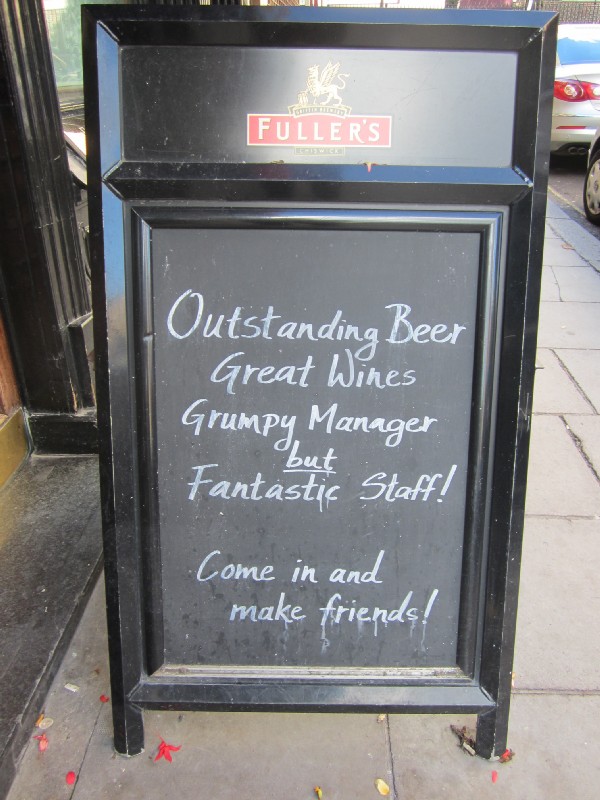 FULLER'S
CHISWICK
Outstanding Beer
Great Wines
Grumpy Manager
but
Fantastic Staff!
Come in and
make friends!